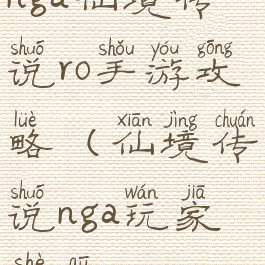 nga仙境传
shuō shǒu yóu gōng
说ro手游攻
lüè xiān jìng chuán
略（仙境传
shuō wán jiā
说nga玩家
shè qū